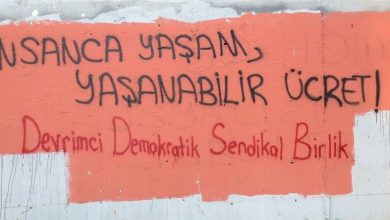 NSANCA YAŞAM,
YAŞANABİLİR ÜCRET!
Devrimci Demokratik Sendikal Birlik